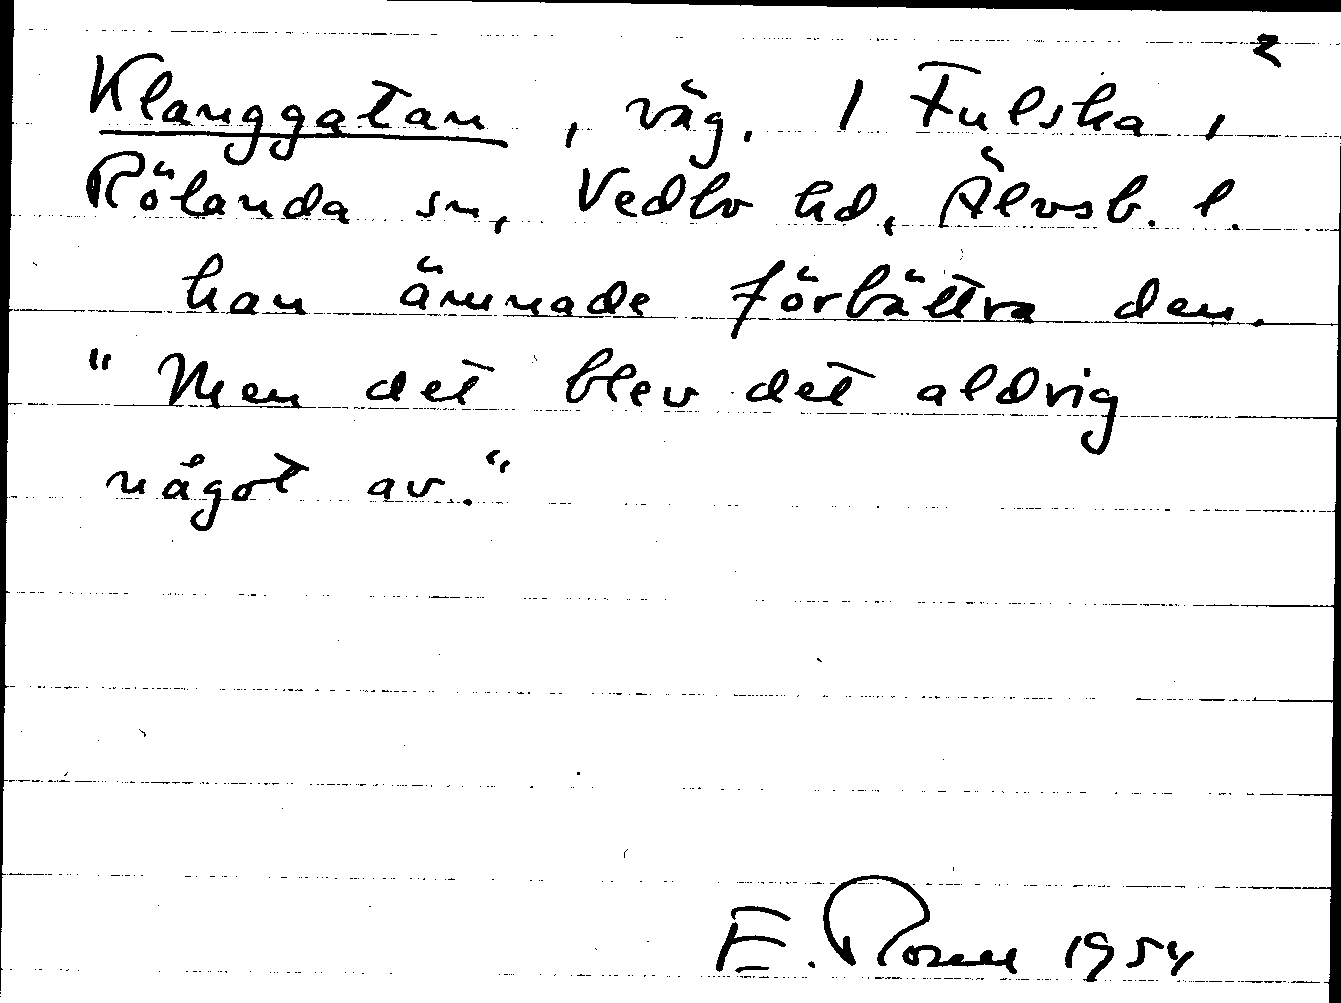 2
Klanggatan, väg. I Fulska,
Rölanda sn, Vedbo hd, Älvsb. l.
han ämnade förbättra den.
"Men det blev det aldrig
något av."
E. Rosell 1954